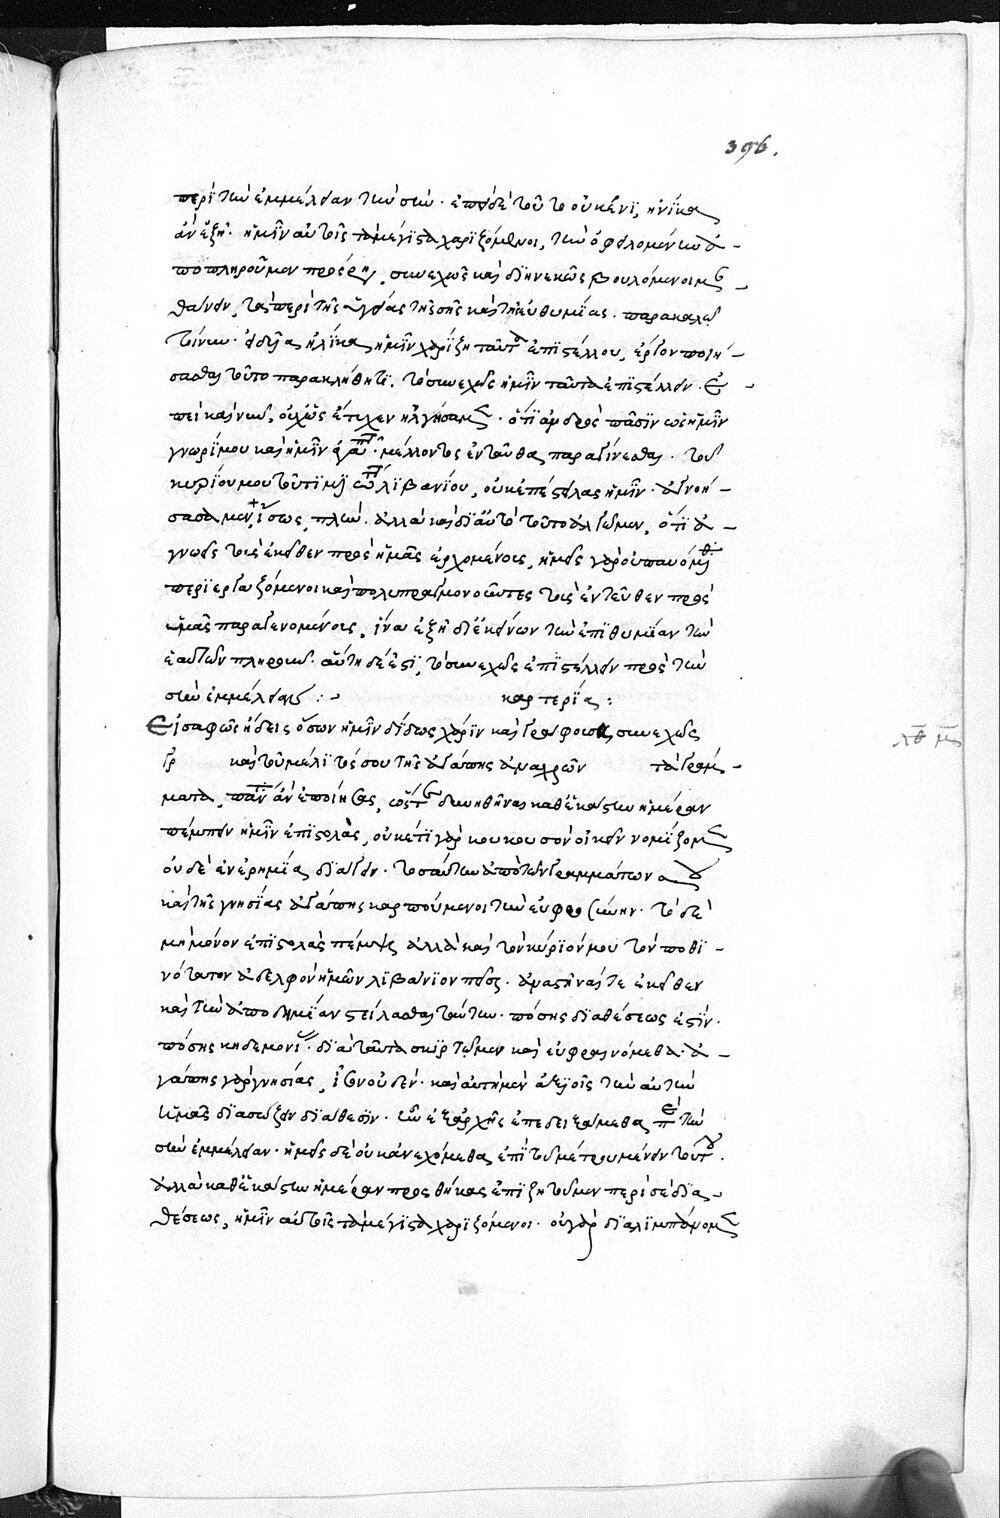 396.
περὶ τὴν ἐμμέλειαν τὴν σήν. ἐπειδὲ τοῦτο οὐκ ἔνι, ἡνίκα
ἂν ἐξῇ. ἡμῖν αὐτοῖς τὰ μέγιστα χαριζόμενοι, τὴν ὀφειλομένην ἀ-
ποπληροῦμεν πρόσρησιν, συνεχῶς καὶ διηνεκῶς βουλόμενοι μαν-
θάνειν, τὰ περὶ τῆς ὑγείας τῆς σῆς καὶ τῆς εὐθυμίας. παρακαλῶ
τοίνυν. εἰδυῖα ἡλίκα ἡμῖν χαρίζῃ ταῦτα ἐπιστέλλουσα, ἔργον ποιή-
σασθαι τοῦτο παρακλήθητι, τὸ συνεχῶς ἡμῖν ταῦτα ἐπιστέλλειν. ἐ-
πεὶ καὶ νῦν, οὐχ ὡς ἔτυχεν ἠλγήσαμεν. ὅτι ἀνδρὸς πᾶσιν ὡς ἡμῖν
γνωρίμου καὶ ἡμῖν μέλλοντος ἐνταῦθα παραγίνεσθαι. τοῦ
κυρίου μου τοῦ τιμι Λιβανίου, οὐκ ἐπέστειλας ἡμῖν. ἀγνοή-
σασα μὲν ἴσως, πλὴν. ἀλλὰ καὶ δι' αὐτὸ τοῦτο ἀλγοῦμεν, ὅτι ἀ-
γνοεῖς τοὺς ἐκεῖθεν πρὸς ἡμᾶς ἐρχομένους, ἡμεῖς γὰρ οὐ παυόμεθα
περιεργαζόμενοι καὶ πολυπραγμονοῦντες τοὺς ἐντεῦθεν πρὸς
ὑμᾶς παραγενομένους, ἵνα ἐξῇ δι' ἐκείνων τὴν ἐπιθυμίαν τὴν
ἑαυτῶν πληροῦν. αὕτη δέ ἐστι, τὸ συνεχῶς ἐπιστέλλειν πρὸς τὴν
σὴν ἐμμέλειαν :- καρτερίᾳ :
Εἰ σαφῶς ᾔδεις ὅσην ἡμῖν δίδως χάριν καὶ γράφουσα συνεχῶς
γρ καὶ τοῦ μέλιτός σου τῆς ἀγάπης ἀναχρῶν τὰ γράμ-
ματα, πᾶν ἂν ἐποίησας, ὥστε δυνηθῆναι καθ' ἑκάστην ἡμέραν
πέμπειν ἡμῖν ἐπιστολὰς, οὐκέτι γὰρ κουκουσὸν οἰκεῖν νομίζομεν
οὐδὲ ἐν ἐρημίᾳ διάγειν. τοσαύτην ἀπὸ τῶν γραμμάτων
καὶ τῆς γνησίας ἀγάπης καρπούμενοι τὴν εὐφροσύνην. τὸ δὲ
μὴ μόνον ἐπιστολὰς πέμψαι ἀλλὰ καὶ τὸν κύριόν μου τὸν ποθι-
νότατον ἀδελφὸν ἡμῶν Λιβάνιον πρὸς. ἀναστῆναί τε ἐκεῖθεν
καὶ τὴν ἀποδημίαν στείλασθαι ταύτην. πόσης διαθέσεως ἐστίν.
πόσης κηδεμονίας. διὰ ταῦτα σκιρτῶμεν καὶ εὐφραινόμεθα. ἀ-
γάπης γὰρ γνησίας, ἴσον οὐδέν. καὶ αὐτὴ μὲν ἀξιοῖς τὴν αὐτὴν
ἡμᾶς διασώζειν διάθεσιν. ἣν ἐξ ἀρχῆς ἐπεδειξάμεθα περὶ τὴν
σὴν ἐμμέλειαν. ἡμεῖς δὲ οὐκ ἀνεχόμεθα ἐπὶ τοῦ μέτρου μένειν τούτου.
ἀλλὰ καθ' ἑκάστην ἡμέραν προσθήκας ἐπιζητοῦμεν περὶ σὲ δια-
θέσεως, ἡμῖν αὐτοῖς τὰ μέγιστα χαριζόμενοι. οὐ γὰρ διαλιμπάνομεν